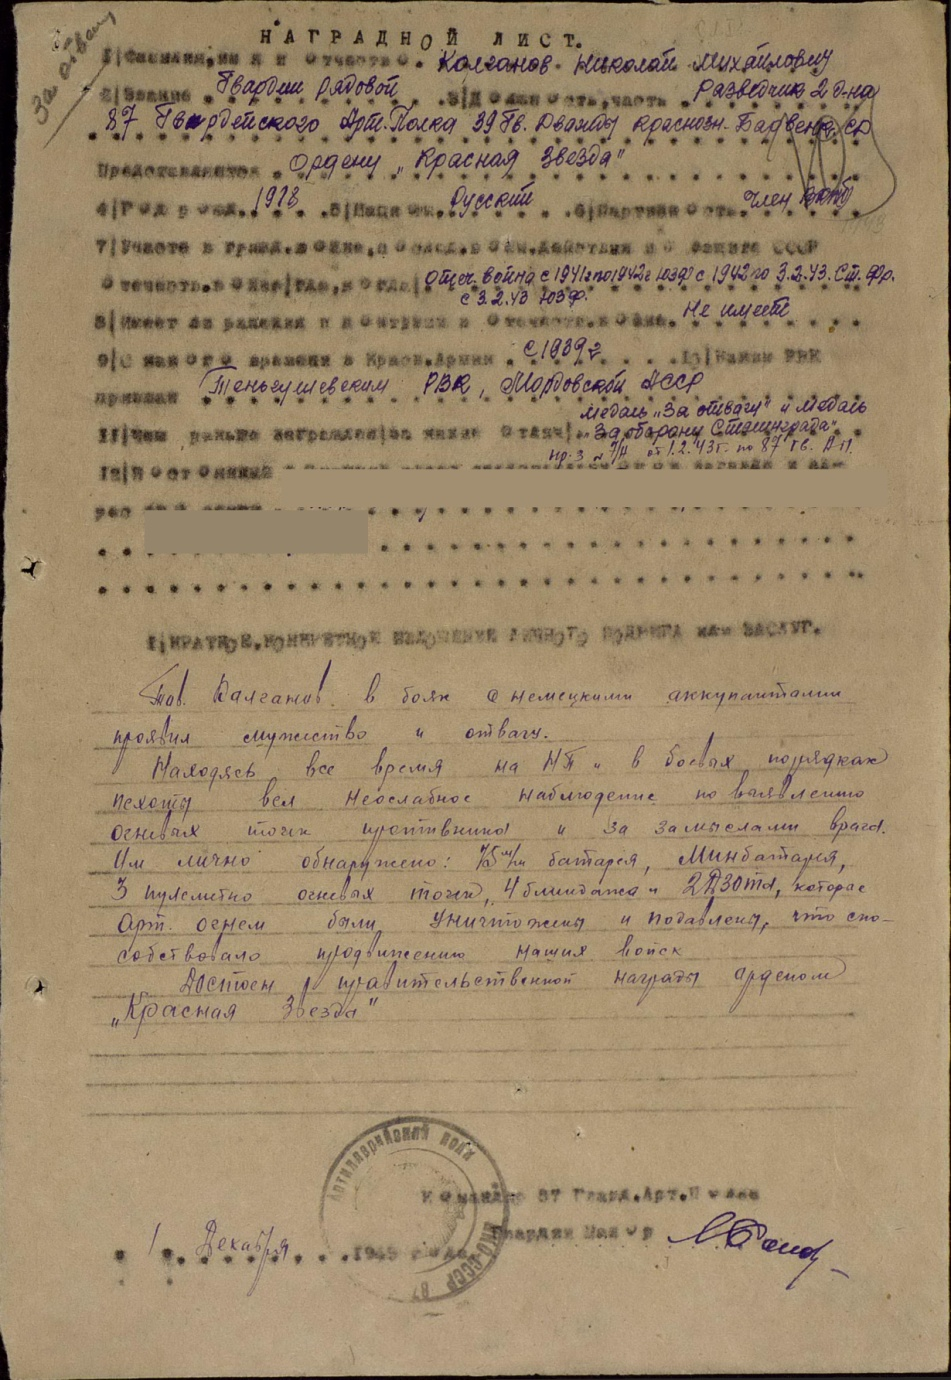 За отвагу
НАГРАДНОЙ ЛИСТ.
1/Фамилия, имя и отчество. Колганов Николай Михайлович
2/Звание Гвардии Рядовой 3/Должность, часть Разведчик 2 д-на
87 Гвардейского Арт. Полка 39 Гв. Дважды краснозн. Барвенк. СД
Представляется Ордену „Красная Звезда"
4/Год рожд. 1918 5/Национ. Русский 6/Партийность. член ВКПб
7/Участв в гражд. войне, послед. воен. действия по защите СССР
Отечеств. войне/где, когда/ Отеч. война с 1941г по 1942г ЮЗФ с 1942 по 3.2.43. Ст. Фр.
с 3.2.43 ЮЗФ.
8/Имеет ли ранения и контузии в отечеств. войне. Не имеет
9/С какого времени в Красн. Армии с 1939г 10/Каким РВК
призван Теньгушевским РВК, Мордовской АССР
медаль „За отвагу" и медаль
11/Чем раньше награжден/за какие отлич/ „За оборону Сталинграда".
пр. 3 н 7/н от 1.2.43г. по 87 гв. А.П.
12/Постоянный
1/КРАТКОЕ, КОНКРЕТНОЕ ИЗЛОЖЕНИЕ ЛИЧНОГО ПОДВИГА или ЗАСЛУГ.
Тов. Калганов. в боях с немецкими аккупантами
проявил мужество и отвагу.
Находясь все время на НП и в боевых порядках
пехоты вел неослабное наблюдение по выявлению
огневых точек противника и за замыслами врага.
Им лично обнаружено: 75 м/м батарея, Минбатарея,
3 пулеметно огневых точек, 4 блиндажа и 2 ДЗОТа, которые
Арт. огнем были уничтожены и подавлены, что спо-
собствовало продвижению наших войск
Достоен правительственной награды орденом
„Красная Звезда"
Командир 87 Гвард. Арт. Полка
Гвардии Майор
1 Декабря 1943 года
АРТИЛЛЕРИЙСКИЙ ПОЛК
НКО-СССР 87